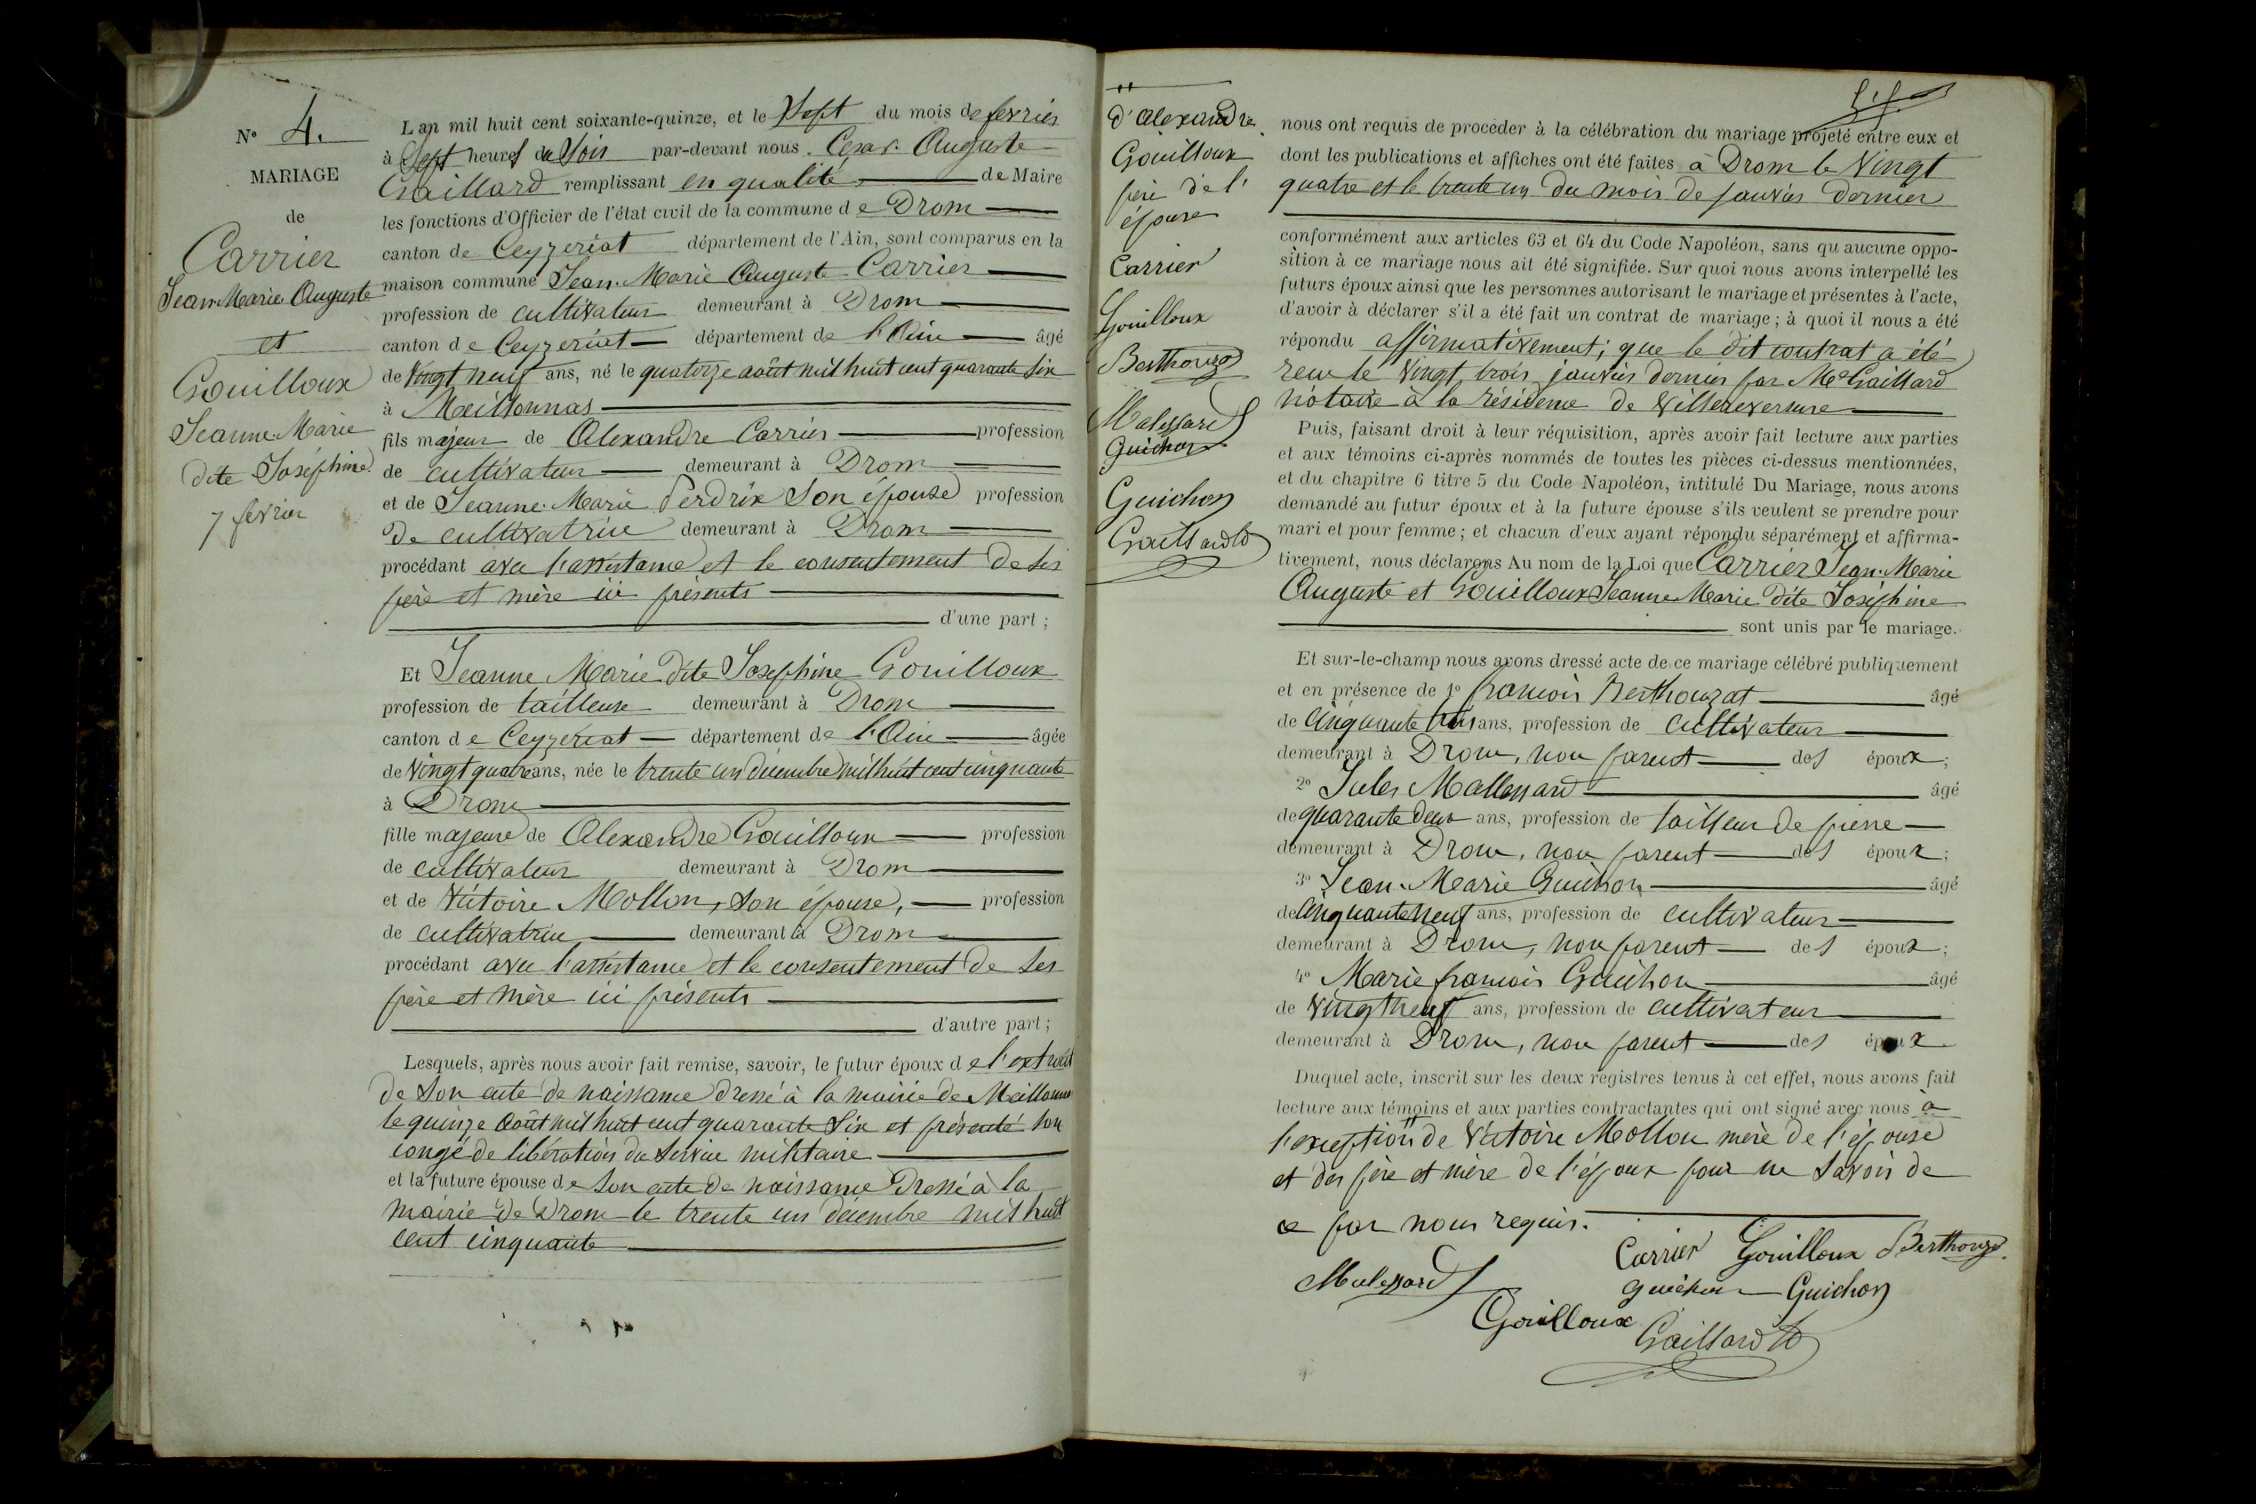 N° 4.
MARIAGE
de
Carrier
Jean Marie Auguste
et
Gouilloux
Jeanne Marie
dite Joséphine
7 fevrier
L'an mil huit cent soixante-quinze, et le Sept du mois de fevrier
à Sept heures du Soir par-devant nous Cesar Auguste
Gaillard remplissant en qualité de Maire
les fonctions d'Officier de l'état civil de la commune de Drom
canton de Ceyzeriat département de l'Ain, sont comparus en la
maison commune Jean Marie Auguste Carrier
profession de cultivateur demeurant à Drom
canton de Ceyzeriat département de l'Ain âgé
de Vingt neuf ans, né le quatorze août mil huit cent quarante Six
à Meillonnas
fils majeur de Alexandre Carrier profession
de cultivateur demeurant à Drom
et de Jeanne Marie Perdrix Son épouse profession
de cultivatrice demeurant à Drom
procédant avec l'assistance et le consentement de ses
père et mère ici présents
d'une part ;
Et Jeanne Marie dite Josephine Gouilloux
profession de tailleuse demeurant à Drom
canton de Ceyzeriat département de l'Ain âgée
de Vingt quatre ans, née le trente un décembre mil huit cent cinquante
à Drom
fille majeure de Alexandre Gouilloux profession
de cultivateur demeurant à Drom
et de Victoire Mollon, son épouse, profession
de cultivatrice demeurant à Drom
procédant avec l'assistance et le consentement de ses
père et mère ici présents
d'autre part ;
Lesquels, après nous avoir fait remise, savoir, le futur époux de l'extrait
de son acte de naissance dressé à la mairie de Meillonnas
le quinze Août mil huit cent quarante Six et présenté son
congé de libération du service militaire
et la future épouse de son acte de naissance dressé à la
mairie de Drom le trente un décembre mil huit
cent cinquante
d'Alexandre
Gouilloux
père de l'
épouse
Carrier
Gouilloux
Berthouza
Malessard
Guichon
Guichon
Gaillard
nous ont requis de procéder à la célébration du mariage projeté entre eux et
dont les publications et affiches ont été faites à Drom le Vingt
quatre et le trente un du mois de janvier dernier
conformément aux articles 63 et 64 du Code Napoléon, sans qu'aucune oppo-
sition à ce mariage nous ait été signifiée. Sur quoi nous avons interpellé les
futurs époux ainsi que les personnes autorisant le mariage et présentes à l'acte,
d'avoir à déclarer s'il a été fait un contrat de mariage ; à quoi il nous a été
répondu affirmativement ; que le dit contrat a été
reçu le Vingt trois janvier dernier par Me Gaillard
notaire à la résidence de Villereversure
Puis, faisant droit à leur réquisition, après avoir fait lecture aux parties
et aux témoins ci-après nommés de toutes les pièces ci-dessus mentionnées,
et du chapitre 6 titre 5 du Code Napoléon, intitulé Du Mariage, nous avons
demandé au futur époux et à la future épouse s'ils veulent se prendre pour
mari et pour femme ; et chacun d'eux ayant répondu séparément et affirma-
tivement, nous déclarons Au nom de la Loi que Carrier Jean Marie
Auguste et Gouilloux Jeanne Marie dite Joséphine
sont unis par le mariage.
Et sur-le-champ nous avons dressé acte de ce mariage célébré publiquement
et en présence de 1° francois Berthouzat âgé
de cinquante trois ans, profession de cultivateur
demeurant à Drom, non parent des époux ;
2° Jules Mallessard âgé
de quarante deux ans, profession de tailleur de pierre
demeurant à Drom, non parent des époux ;
3° Jean Marie Guichon âgé
de cinquante neuf ans, profession de cultivateur
demeurant à Drom, non parent des époux ;
4° Marie francois Guichon âgé
de Vingt neuf ans, profession de cultivateur
demeurant à Drom, non parent des époux
Duquel acte, inscrit sur les deux registres tenus à cet effet, nous avons fait
lecture aux témoins et aux parties contractantes qui ont signé avec nous à
l'exception de Victoire Mollon mère de l'épouse
et des père et mère de l'époux pour ne savoir de
ce par nous requis.
Carrier Gouilloux Berthouza
Malessard Guichon Guichon
Gouilloux Gaillard